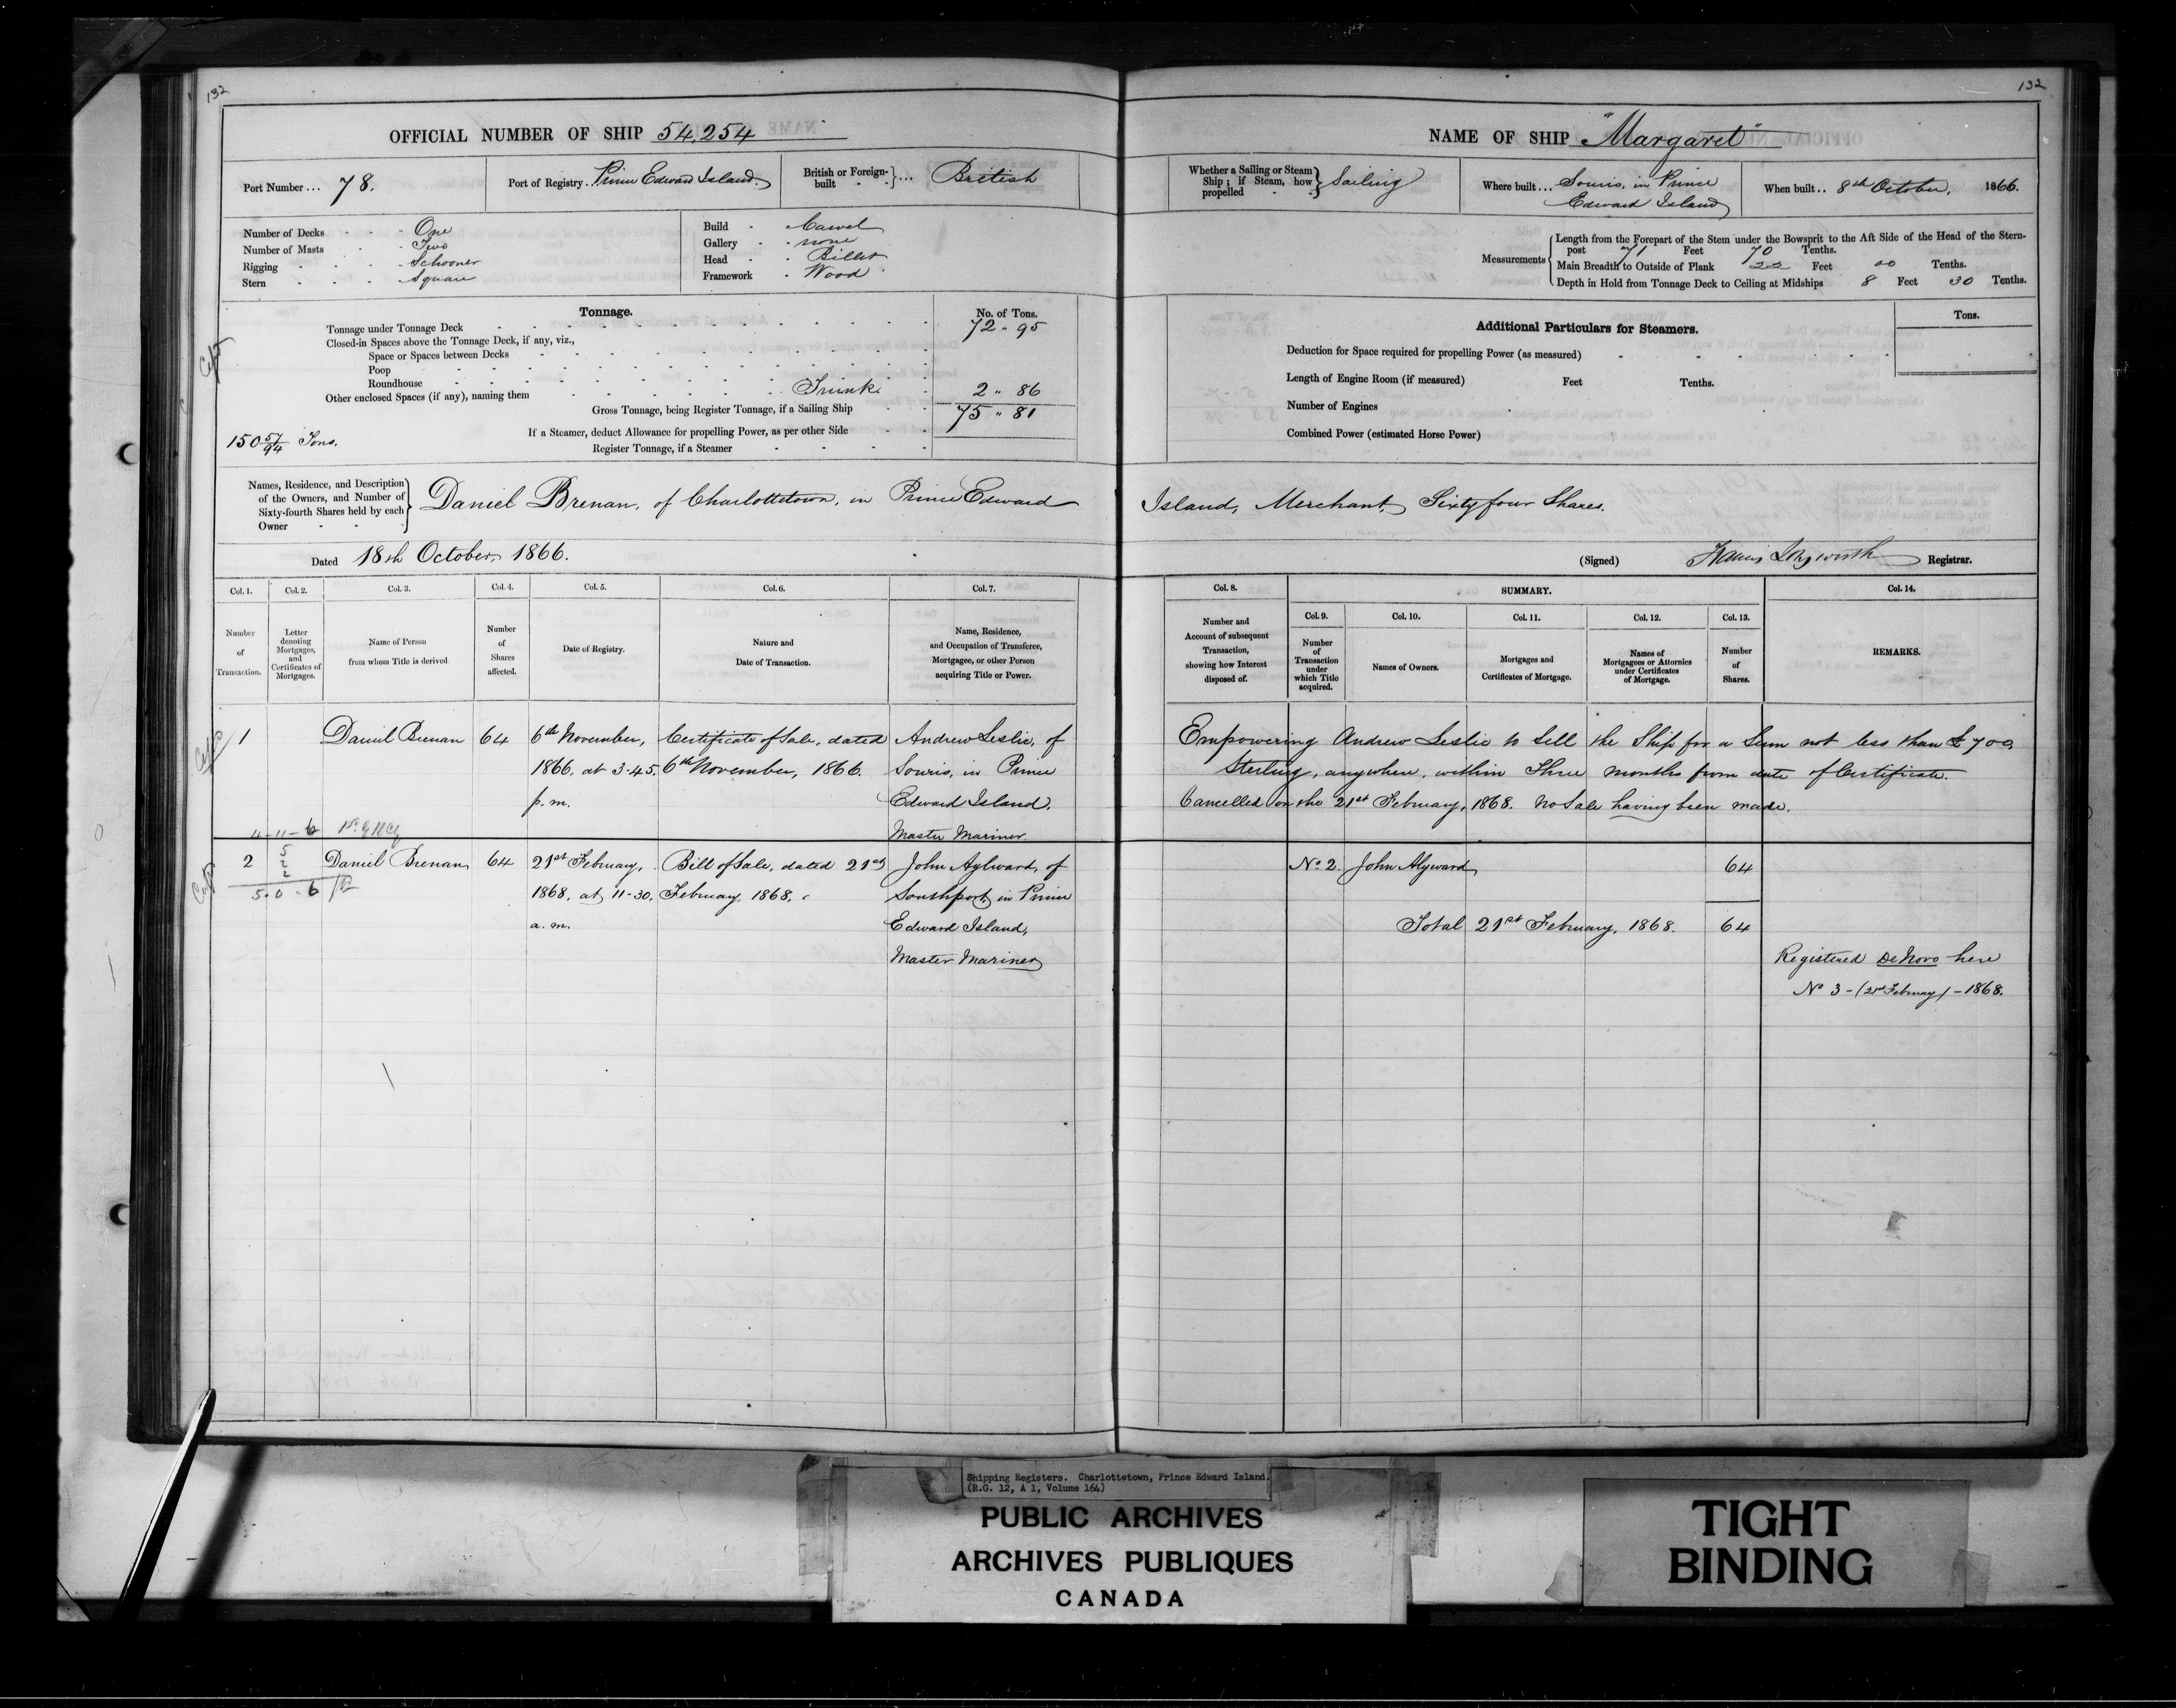 132
OFFICIAL NUMBER OF SHIP 54,254
Port Number ... 78.
Port of Registry. Prince Edward Island.
British or Foreign-built } ... British
Number of Decks One
Number of Masts Two
Rigging Schooner
Stern Square
Build Carvel
Gallery none
Head Billet
Framework Wood
Tonnage.
No. of Tons.
Tonnage under Tonnage Deck 72 " 95
Closed-in Spaces above the Tonnage Deck, if any, viz.,
Space or Spaces between Decks
Poop
Roundhouse
Other enclosed Spaces (if any), naming them Trunk 2 " 86
Gross Tonnage, being Register Tonnage, if a Sailing Ship 75 " 81
150 57/94 Tons.
If a Steamer, deduct Allowance for propelling Power, as per other Side
Register Tonnage, if a Steamer
Names, Residence, and Description
of the Owners, and Number of
Sixty-fourth Shares held by each
Owner
Daniel Brenan, of Charlottetown, in Prince Edward
Dated 18th October, 1866.
Col. 1. Col. 2. Col. 3. Col. 4. Col. 5. Col. 6. Col. 7.
Number of Transaction.
Letter denoting Mortgages, and Certificates of Mortgages.
Name of Person from whom Title is derived.
Number of Shares affected.
Date of Registry.
Nature and Date of Transaction.
Name, Residence, and Occupation of Transferee, Mortgagee, or other Person acquiring Title or Power.
1 Daniel Brenan 64 6th November, Certificate of Sale, dated Andrew Leslie, of
1866, at 3-45. 6th November, 1866. Souris, in Prince
p.m. Edward Island.
4-11-6 Master Mariner
2 Daniel Brenan 64 21st February, Bill of Sale, dated 21st John Aylward, of
5
2
2
5.0.6 1868, at 11-30, February, 1868. Southport, in Prince
a.m. Edward Island,
Master Mariner
132
NAME OF SHIP "Margaret"
Whether a Sailing or Steam
Ship; if Steam, how
propelled } Sailing
Where built ... Souris, in Prince
Edward Island
When built .. 8th October, 1866.
Measurements
Length from the Forepart of the Stem under the Bowsprit to the Aft Side of the Head of the Stern-
post 71 Feet 70 Tenths.
Main Breadth to Outside of Plank 22 Feet 00 Tenths.
Depth in Hold from Tonnage Deck to Ceiling at Midships 8 Feet 30 Tenths.
Additional Particulars for Steamers.
Tons.
Deduction for Space required for propelling Power (as measured)
Length of Engine Room (if measured) Feet Tenths.
Number of Engines
Combined Power (estimated Horse Power)
Island, Merchant, Sixty four Shares.
(Signed) Francis Longworth Registrar.
Col. 8. SUMMARY. Col. 14.
Col. 9. Col. 10. Col. 11. Col. 12. Col. 13.
Number and Account of subsequent Transaction, showing how Interest disposed of.
Number of Transaction under which Title acquired.
Names of Owners.
Mortgages and Certificates of Mortgage.
Names of Mortgagees or Attornies under Certificates of Mortgage.
Number of Shares.
REMARKS.
Empowering Andrew Leslie to Sell the Ship for a Sum not less than £700.
Sterling, anywhere, within Three months from date of Certificate.
Cancelled on the 21st February, 1868. No Sale having been made.
No 2. John Alyward 64
Total 21st February, 1868. 64
Registered De Novo here
No 3 - (21st February) - 1868.
Shipping Registers. Charlottetown, Prince Edward Island.
(R.G. 12, A 1, Volume 164)
PUBLIC ARCHIVES
ARCHIVES PUBLIQUES
CANADA
TIGHT
BINDING